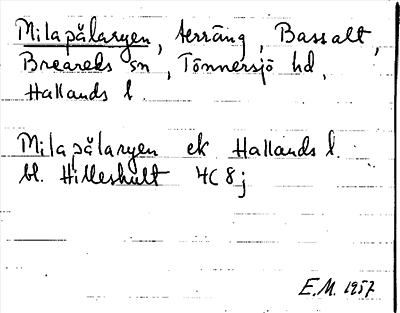 Milapålaryen, terräng, Bassalt,
Breareds sn, Tönnersjö hd,
Hallands l.
Milapålaryen ek Hallands l.
bl. Hilleshult 4C 8j
E.M. 1957